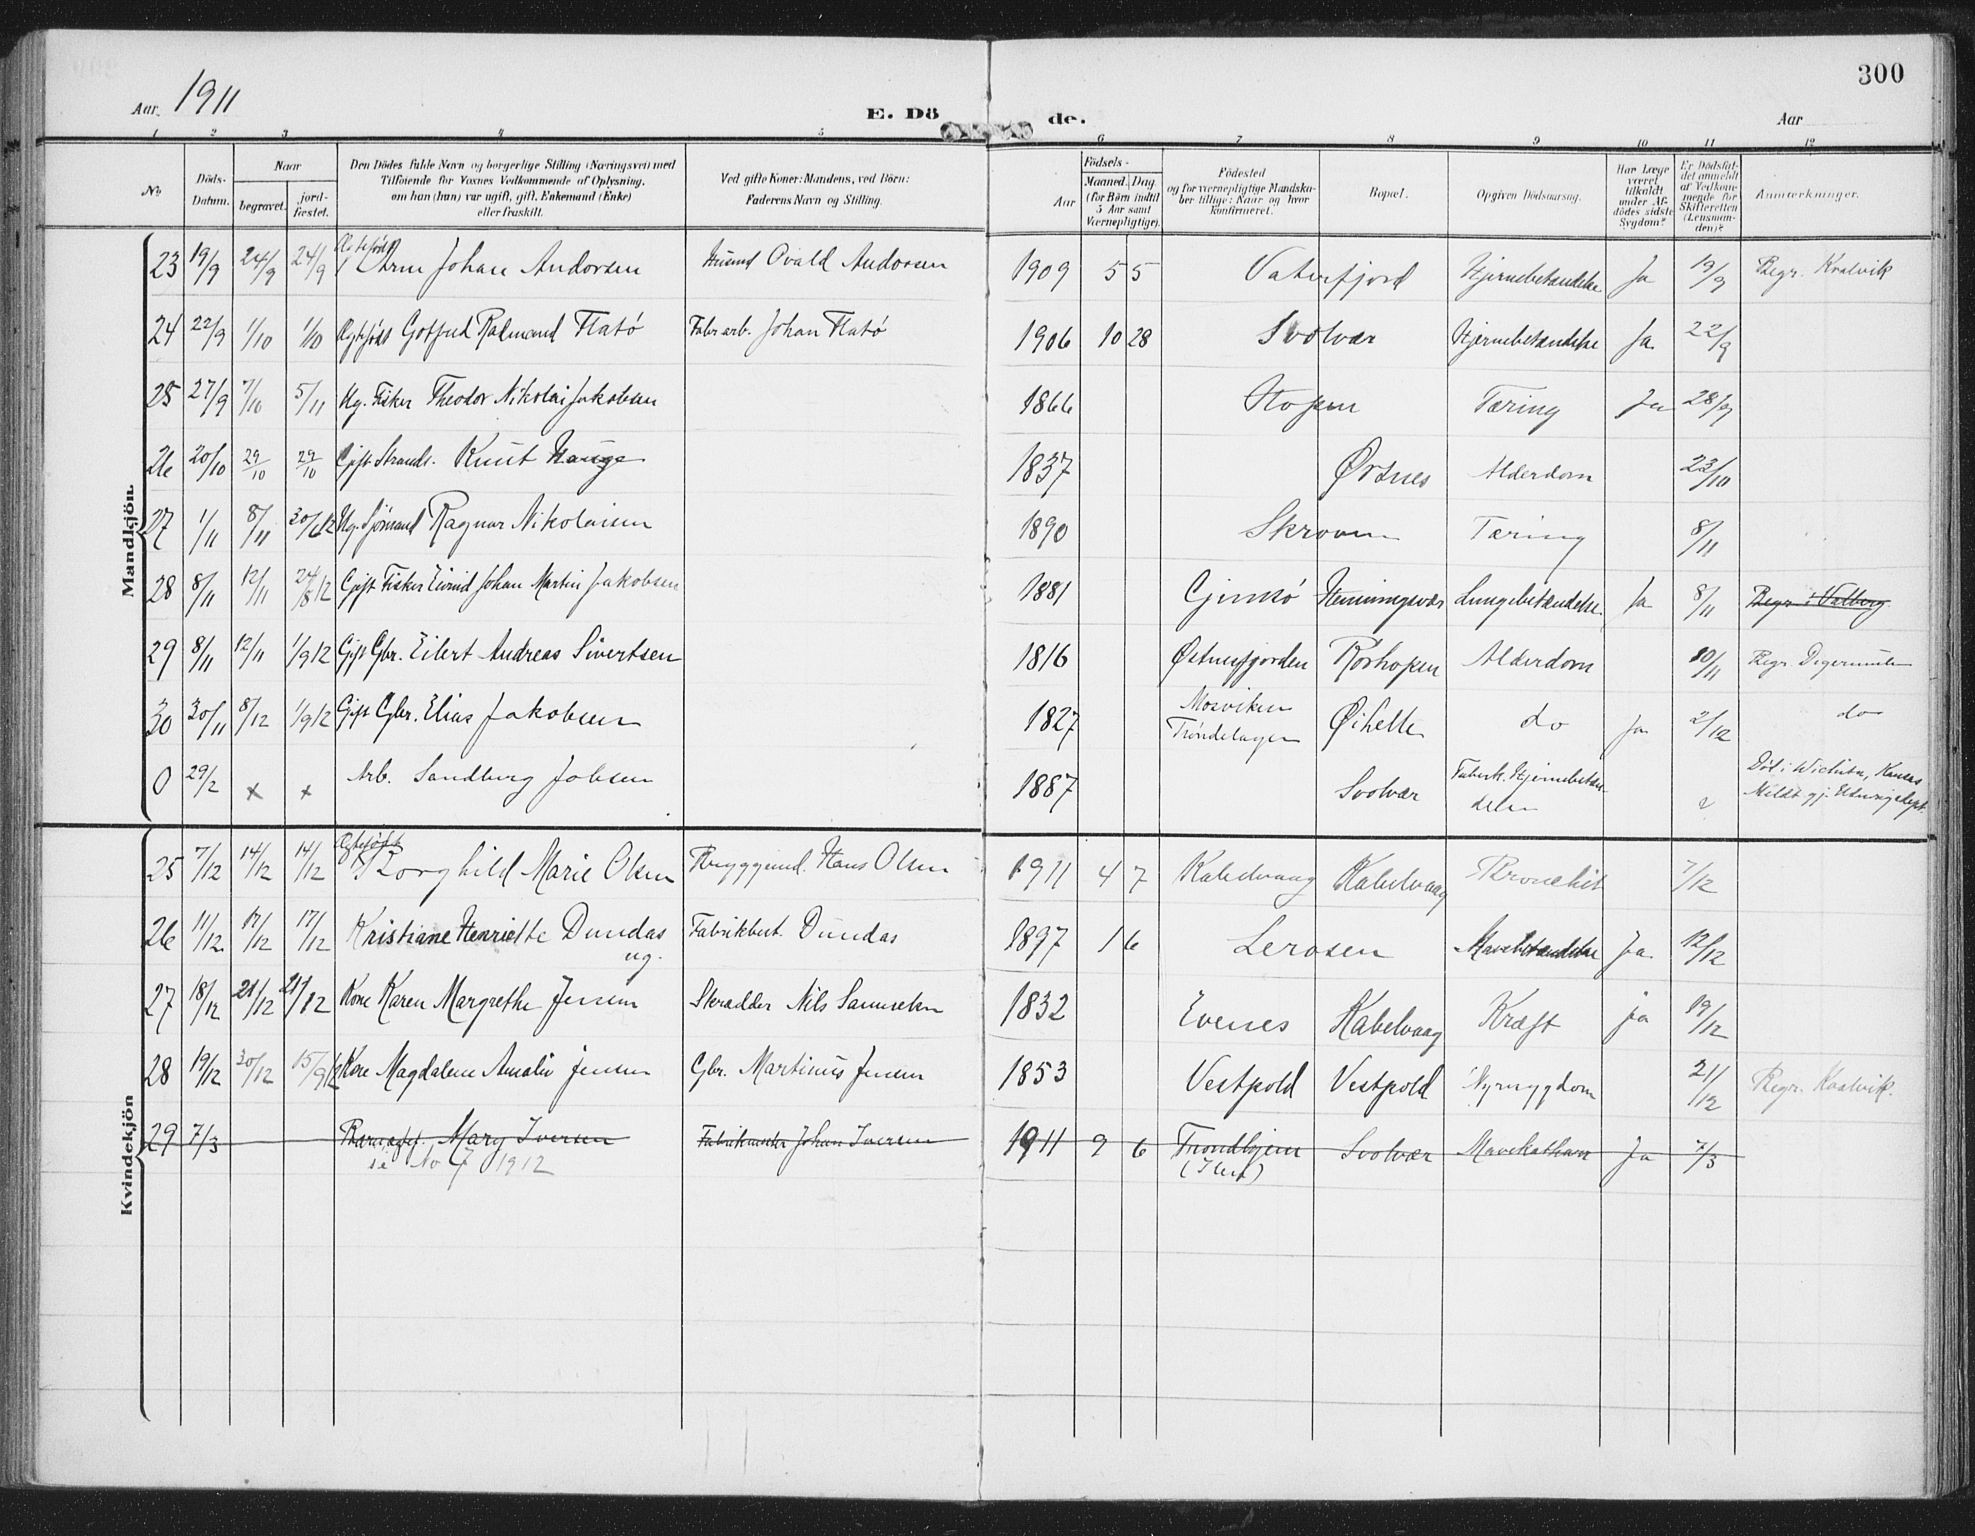 300
Aar. 1911
E. Dö de.
Aar
1 2 3 4 5 6 7 8 9 10 11 12
No
Döds-Datum.
Naar
begravet.
jord-fæstet.
Den Dödes fulde Navn og borgerlige Stilling (Næringsvei) med
Tilföiende for Voxnes Vedkommende af Oplysning.
om han (hun) var ugift, gift, Enkemand (Enke)
eller fraskilt.
Ved gifte Koner: Mandens, ved Börn:
Faderens Navn og Stilling.
Födsels-
Aar
Maaned. Dag.
(for Börn indtil
5 Aar samt
Værnepligtige).
Födested
og for værnepligtige Mandska-
ber tillige: Naar og hvor
konfirmeret.
Bopæl.
Opgiven Dödsaarsag.
Har Læge
været
tilkaldt
under Af-
dödes sidste
Sygdom?
Er Dödsfal-
det anmeldt
af Vedkom-
mende for
Skifteretten
(Lensman-
den)?
Anmærkninger.
Mandkjön.
23 19/9 24/9 24/9 Ægtefødt Arne Johan Andorsen Husmd Ovald Andorsen 1909 5 5 Vaterfjord Hjernebetændelse Ja 19/9 Begr. Kvalvik
24 22/9 1/10 1/10 Ægtefødt Gotfred Rolmand Flatø Fabr arb. Johan Flatø 1906 10 28 Svolvær Hjernebetændelse Ja 22/9
25 27/9 7/10 5/11 Ug. Fisker Theodor Nikolai Jakobsen 1866 Hopen Tæring Ja 28/9
26 20/10 29/10 29/10 Gift Strands. Knut Hauge 1837 Ørsnes Alderdom 23/10
27 1/11 8/11 30/6 12 Ug. Sjømand Ragnar Nikolaisen 1890 Skroven Tæring 8/11
28 8/11 12/11 24/8 12 Gift Fisker Eivind Johan Martin Jakobsen 1881 Gimsø Henningsvær Lungebetændelse Ja 8/11 Begr. i Valberg
29 8/11 12/11 1/9 12 Gift Gbr. Eilert Andreas Sivertsen 1816 Østnesfjorden Rørhopen Alderdom 10/11 Begr. Digermulen
30 30/11 8/12 1/9 12 Gift Gbr. Elias Jakobsen 1827 Mosviken Trøndelagen Øihelle do Ja 2/12 do
0 29/2 x x Arb. Sandberg Jobsen 1887 Svolvær Tuberk. Hjernebetændelse Död i Wichita, Kansas
Meldt gj. Utenrigsdept.
Kvindekjön
25 7/12 14/12 14/12 Ægtefødt Borghild Marie Olsen Bryggemd. Hans Olsen 1911 4 7 Kabelvaag Kabelvaag Bronchit 7/12
26 11/12 17/12 17/12 Kristiane Henriette Dundas ug. Fabrikbest. Dundas 1897 1 6 Lerosen Mavebetændelse Ja 12/12
27 18/12 21/12 21/12 Kone Karen Margrethe Jensen Skrædder Nils Samuelsen 1832 Evenes Kabelvaag Kræft ja 19/12
28 19/12 30/12 15/9 12 Kone Magdalene Amalie Jensen Gbr. Martinus Jensen 1853 Vestpold Vestpold Nyresygdom 21/12 Begr. Kvalvik.
29 7/3 Mary Iversen Johan Iversen 1911 9 6 Trondhjem Svolvær Mavekatharr Ja 7/3
se No 7 1912